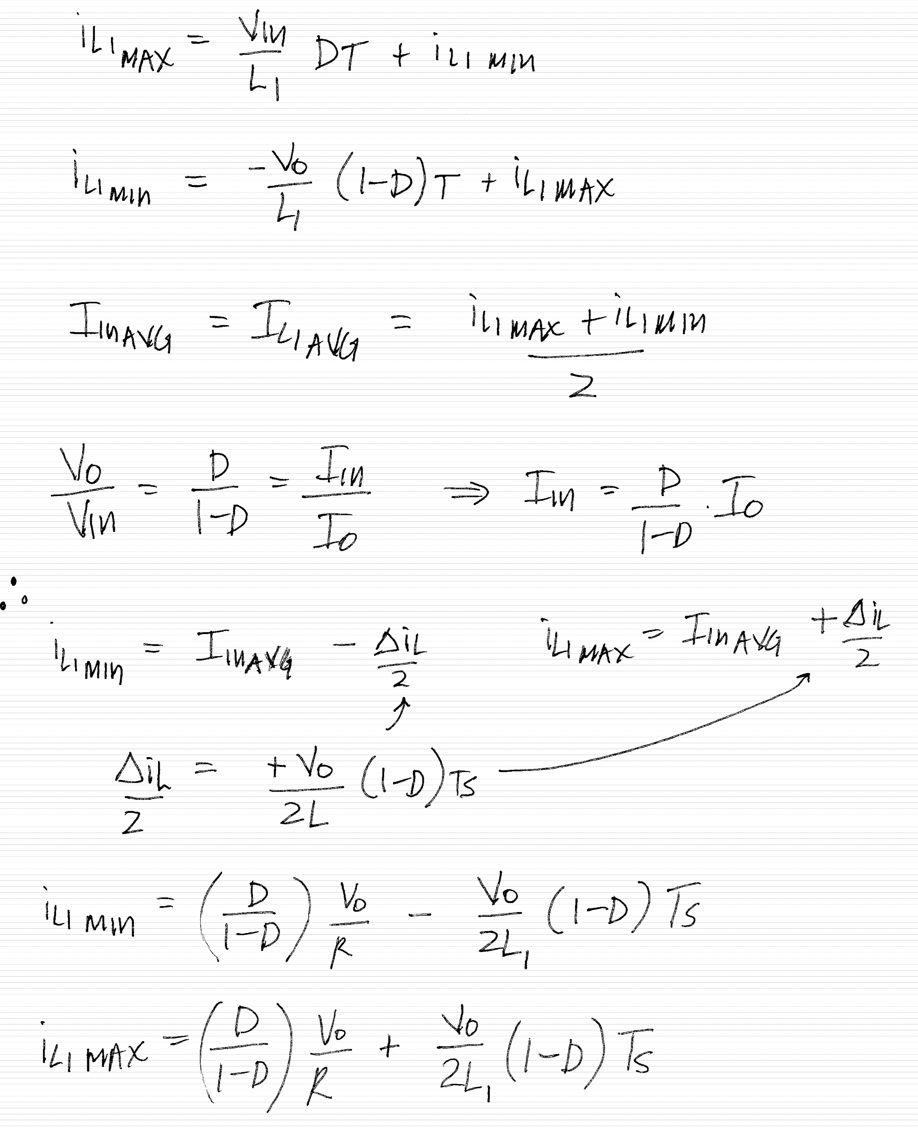 iL1MAX = Vin/L1 DT + iL1 MIN
iL1MIN = -Vo/L1 (1-D)T + iL1MAX
IinAVG = IL1AVG = (iL1MAX + iL1MIN)/2
Vo/Vin = D/(1-D) = Iin/Io ⇒ Iin = D/(1-D) · Io
∴
iL1MIN = IinAVG - ΔiL/2 iL1MAX = IinAVG + ΔiL/2
ΔiL/2 = +Vo/2L (1-D)Ts
iL1 MIN = (D/(1-D)) Vo/R - Vo/2L1 (1-D) Ts
iL1 MAX = (D/(1-D)) Vo/R + Vo/2L1 (1-D) Ts